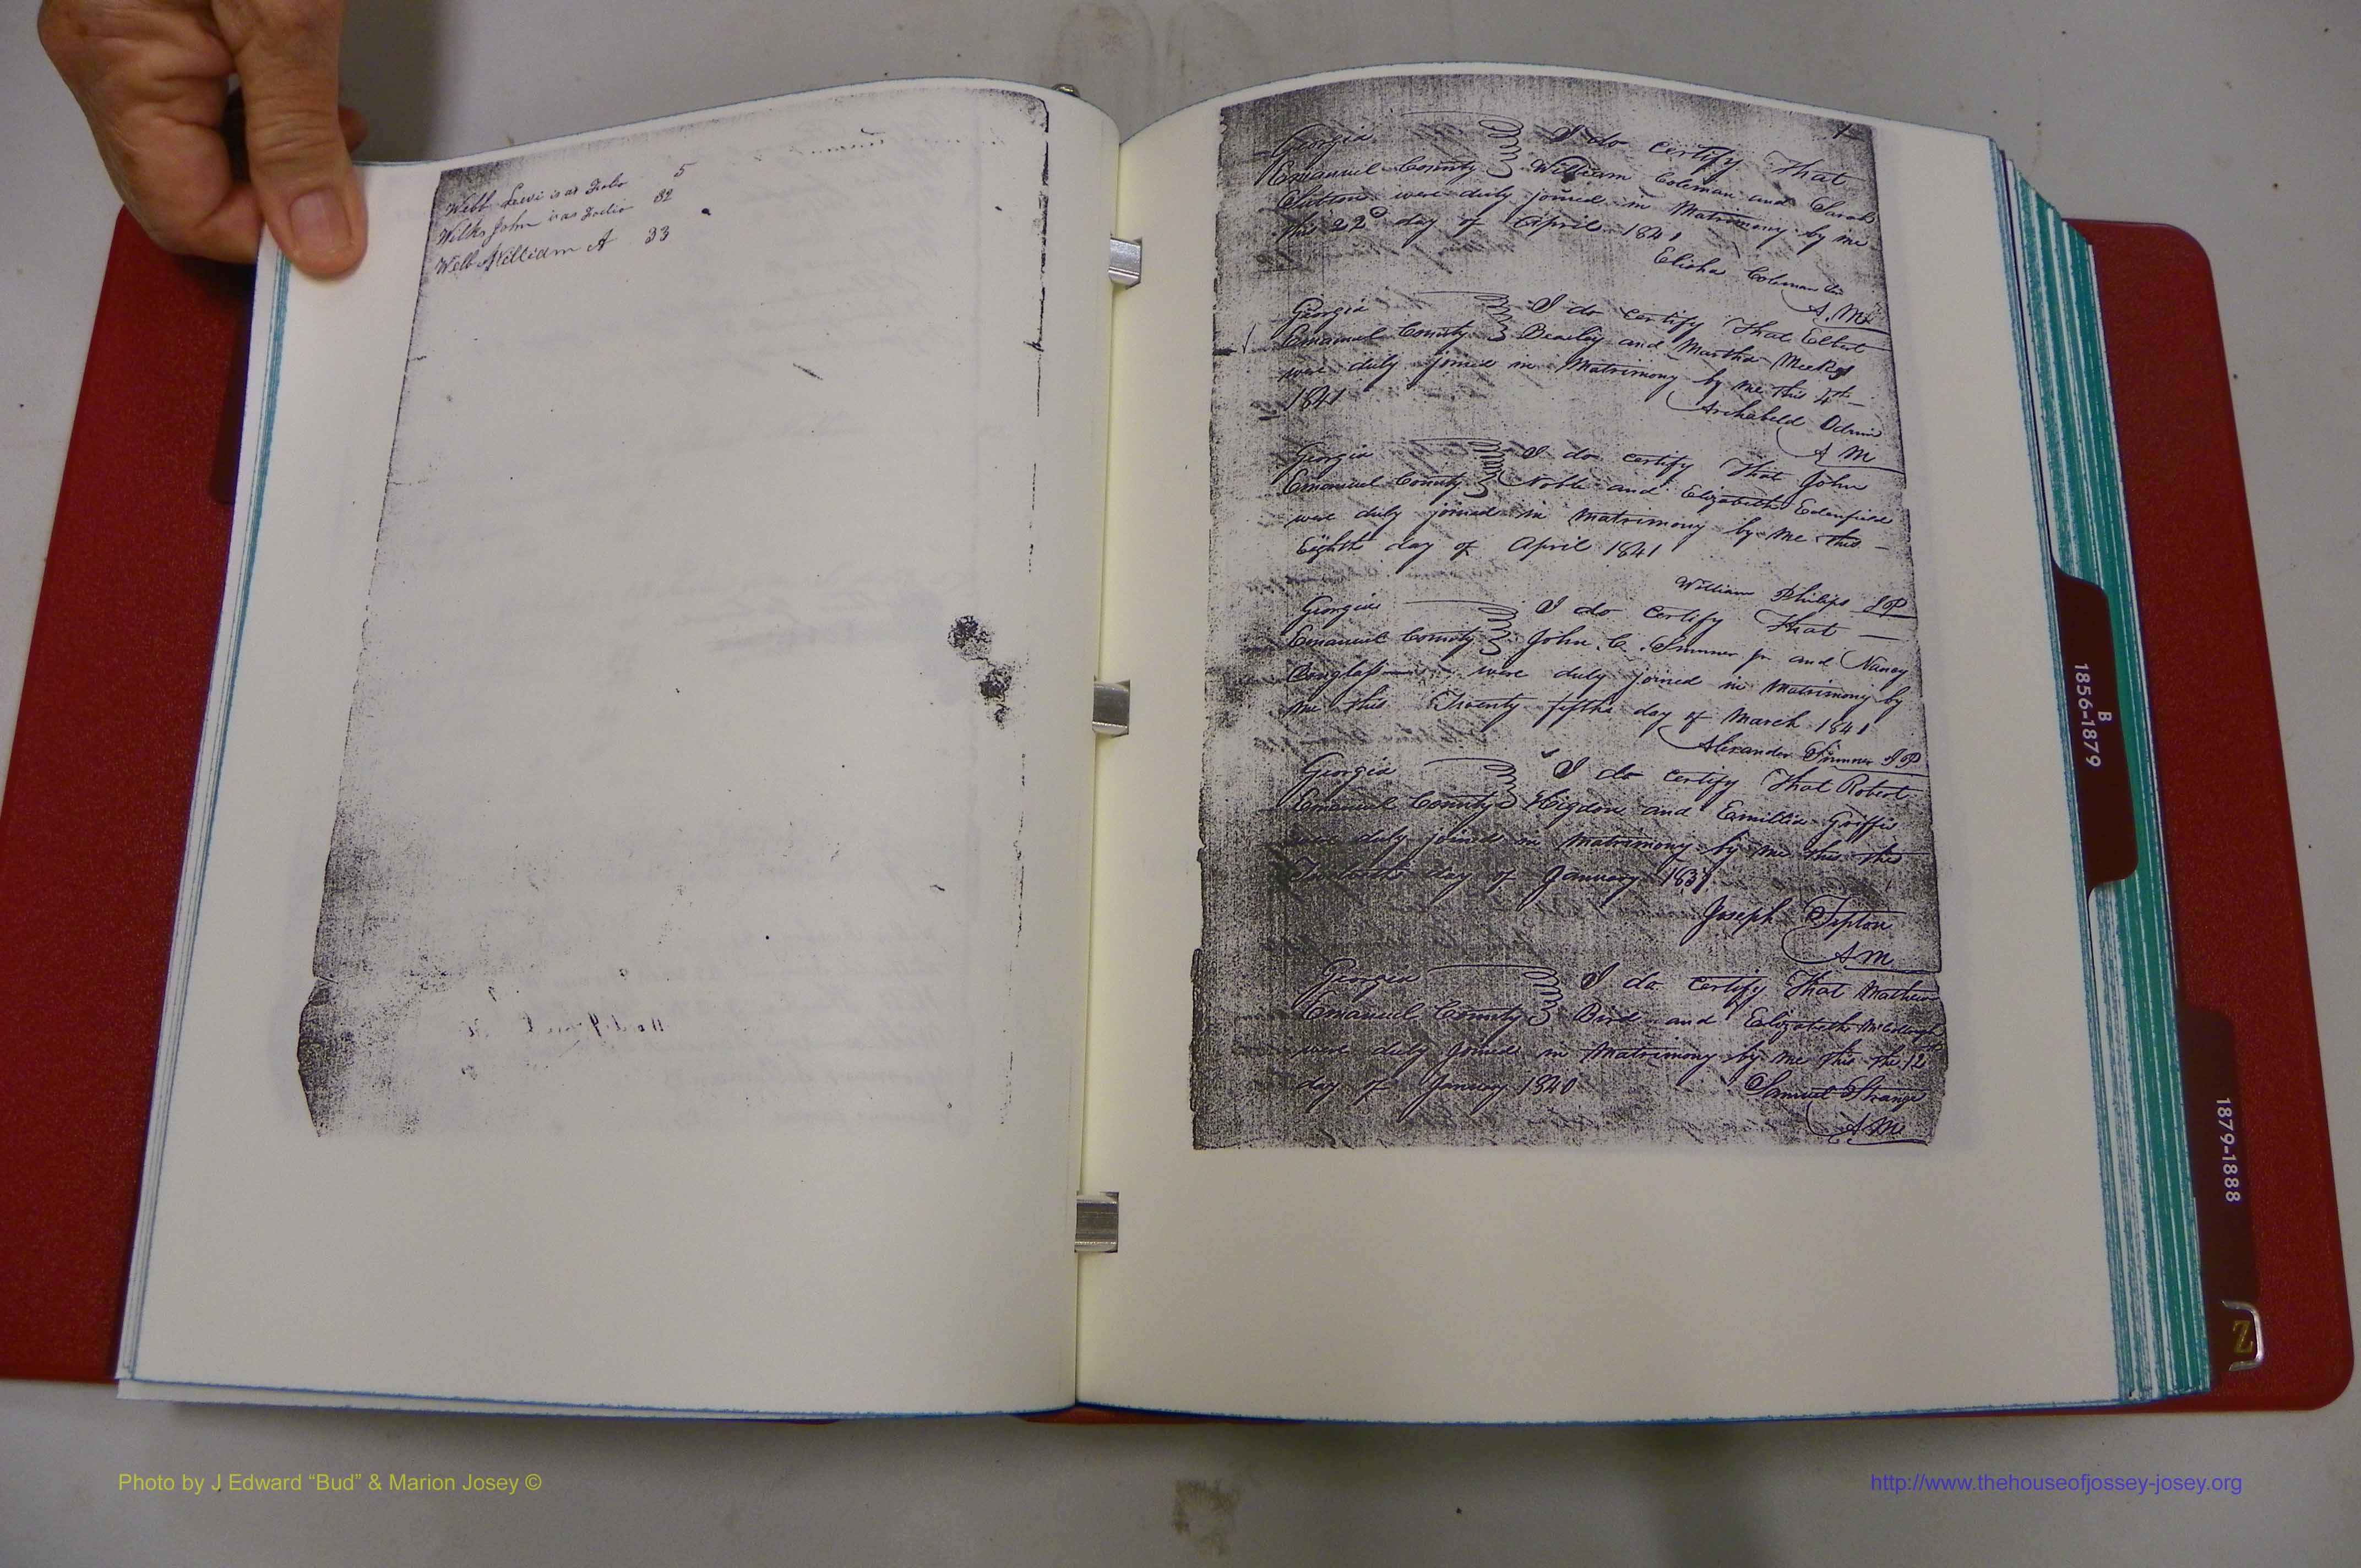 Webb Levi 5
Wilks John 32
Webb William A 33
1
Georgia I do certify That
Emanuel County William Coleman and Sarah
were duly joined in Matrimony by me
this 22d day of April 1841
Elisha Coleman
Georgia I do certify That Elbert
Emanuel County Beasley and Martha Meeks
were duly joined in Matrimony by me this 4th
1841
Archabeld Odum
Georgia I do certify That John
Emanuel County Noble and Elizabeth Edenfield
were duly joined in Matrimony by me this
Eighth day of April 1841
William Philips JP
Georgia I do certify That
Emanuel County John C. Sumner jr and Nancy
were duly joined in Matrimony by
me this Twenty fifth day of March 1841
Alexander Sumner JP
Georgia I do certify That Robert
Emanuel County Higdon and Emillia Griffis
were duly joined in Matrimony by me this the
day of January
Joseph Tipton
Georgia I do certify That Mathew
Emanuel County Bird and Elizabeth
were duly joined in Matrimony by me this the 12th
day of January 1840
Samuel Strange
B
1856-1879
1879-1888
Z
Photo by J Edward “Bud” & Marion Josey ©
http://www.thehouseofjossey-josey.org